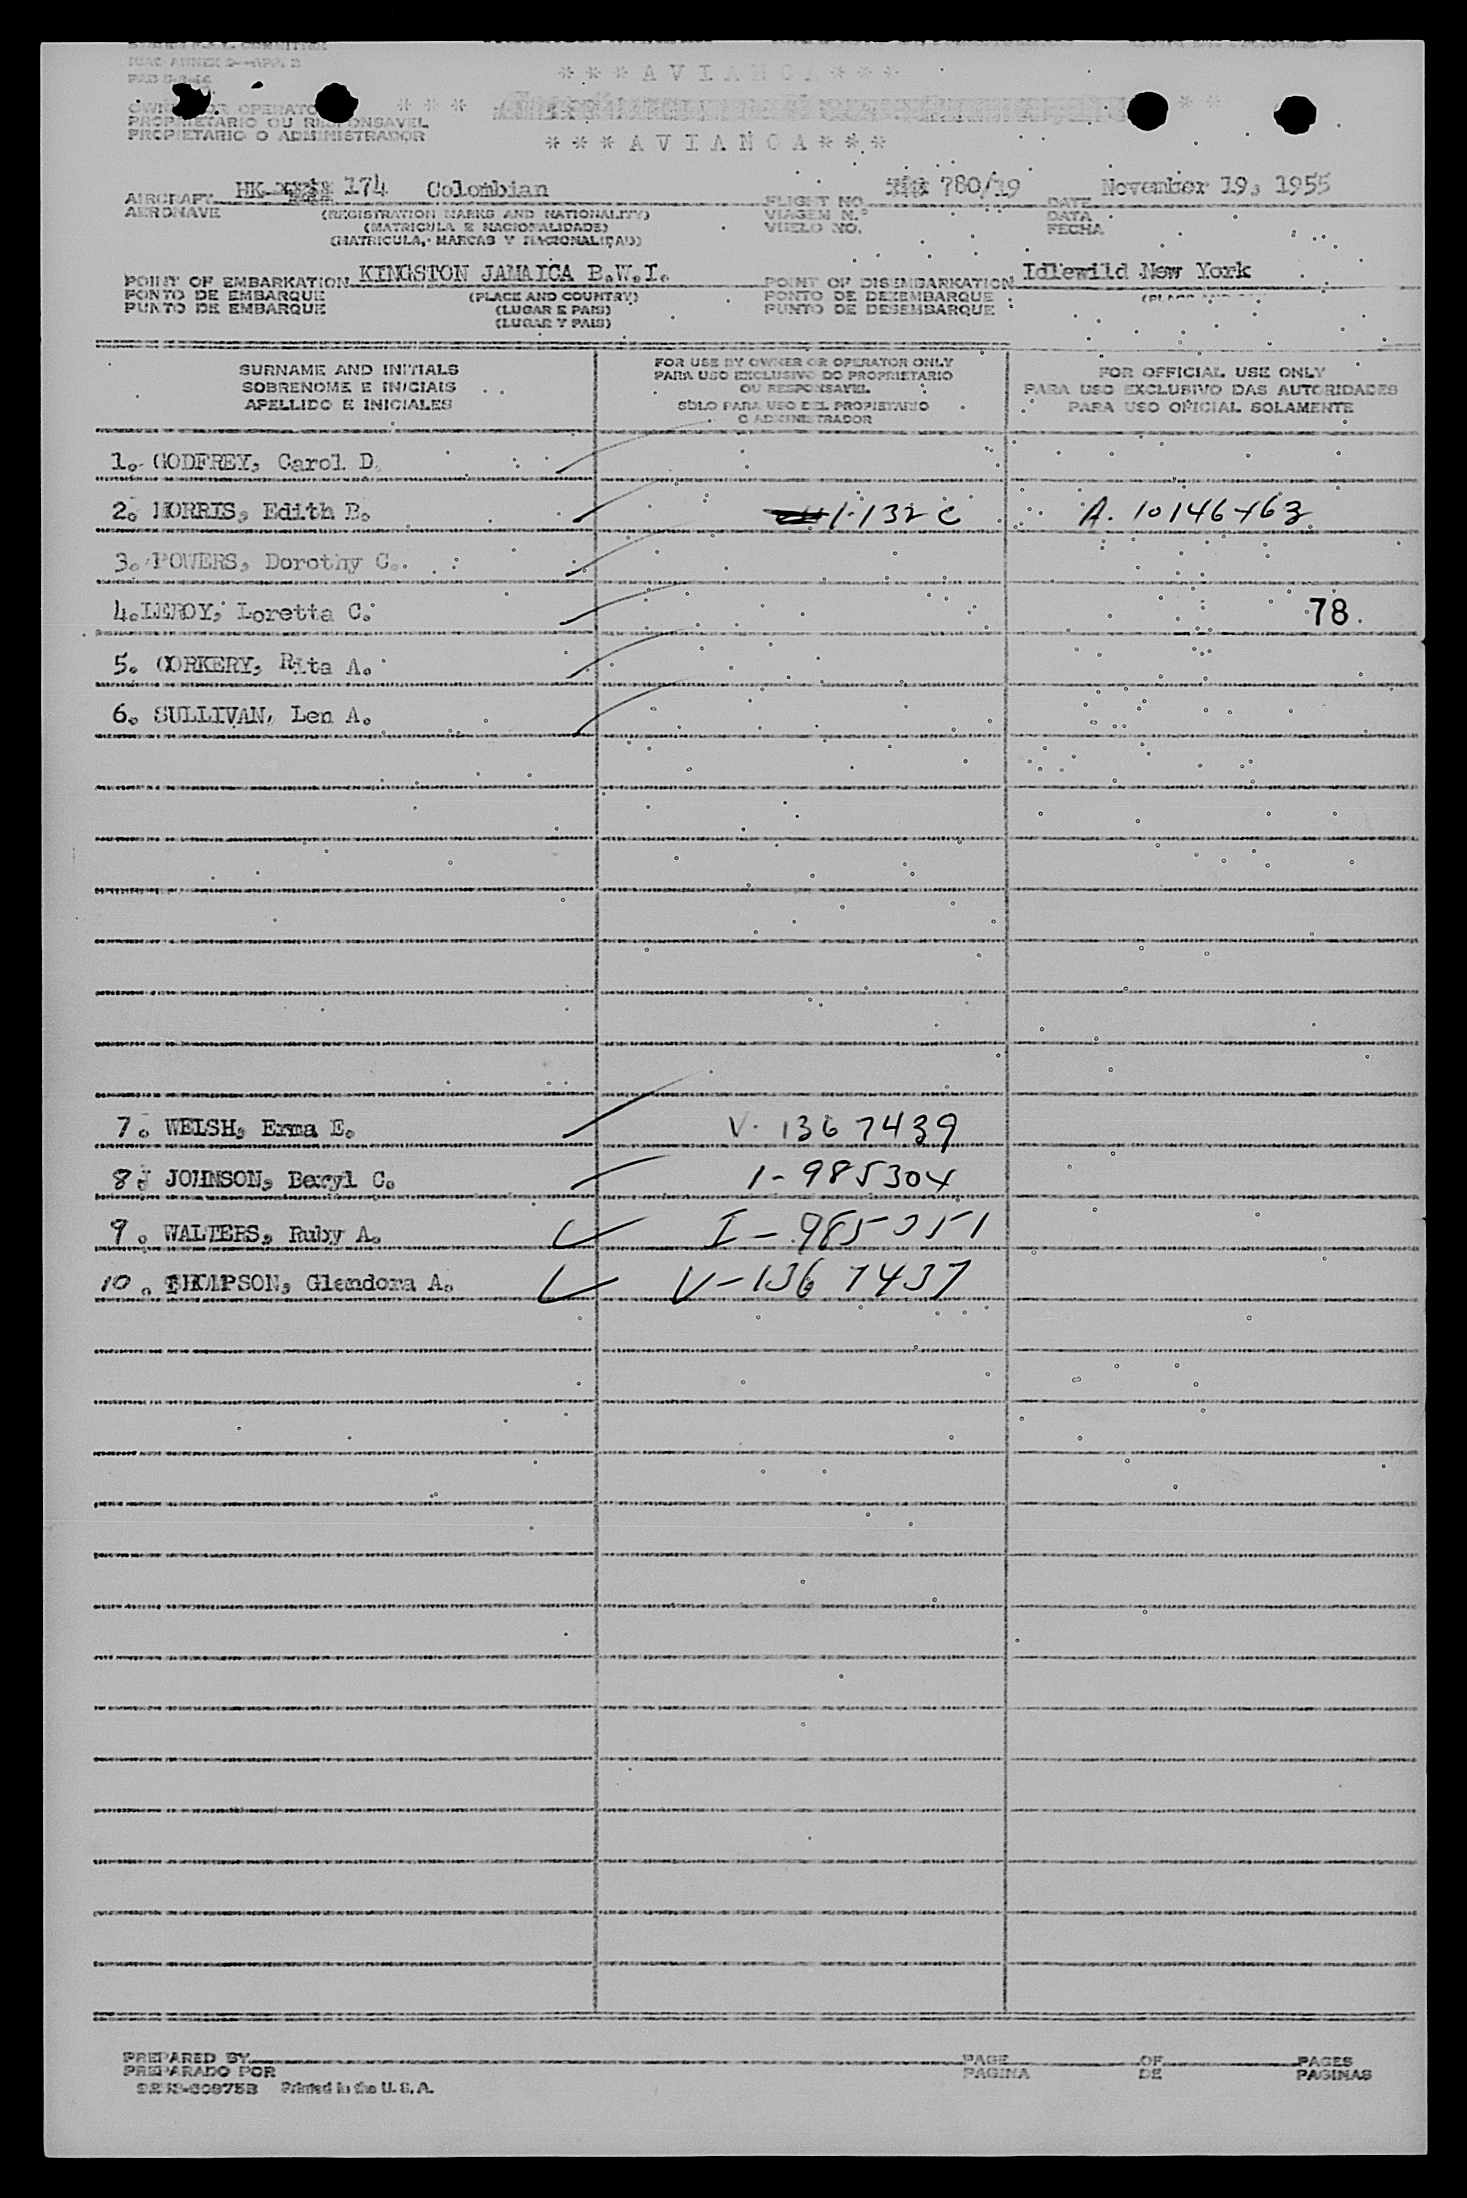 ICAO ANNEX 9—APP. 2
PAD
* * * A V I A N C A * * *
OWNER OR OPERATOR
PROPRIETARIO OU RESPONSAVEL
PROPIETARIO O ADMINISTRADOR
* * * A V I A N C A * * *
AIRCRAFT HK- 174 Colombian FLIGHT NO. 780/19 DATE November 19, 1955
AERONAVE (REGISTRATION MARKS AND NATIONALITY) VIAGEM N.º DATA
(MATRICULA E NACIONALIDADE) VUELO NO. FECHA
(MATRICULA, MARCAS Y NACIONALIDAD)
POINT OF EMBARKATION KINGSTON JAMAICA B.W.I. POINT OF DISEMBARKATION Idlewild New York
PONTO DE EMBARQUE (PLACE AND COUNTRY) PONTO DE DEZEMBARQUE
PUNTO DE EMBARQUE (LUGAR E PAIS) PUNTO DE DESEMBARQUE
(LUGAR Y PAIS)
SURNAME AND INITIALS
SOBRENOME E INICIAIS
APELLIDO E INICIALES
FOR USE BY OWNER OR OPERATOR ONLY
PARA USO EXCLUSIVO DO PROPRIETARIO
OU RESPONSAVEL
SOLO PARA USO DEL PROPIETARIO
O ADMINISTRADOR
FOR OFFICIAL USE ONLY
PARA USO EXCLUSIVO DAS AUTORIDADES
PARA USO OFICIAL SOLAMENTE
1. GODFREY, Carol D.
2. MORRIS, Edith B. 1-132 C A. 10146463
3. POWERS, Dorothy C.
4. LEROY, Loretta C. 78
5. CORKERY, Rita A.
6. SULLIVAN, Len A.
7. WELSH, Erma E. V. 1367439
8. JOHNSON, Beryl C. 1-985304
9. WALTERS, Ruby A. I-985351
10. THOMPSON, Glendora A. V-1367437
PREPARED BY PAGE OF PAGES
PREPARADO POR PAGINA DE PAGINAS
Printed in the U. S. A.